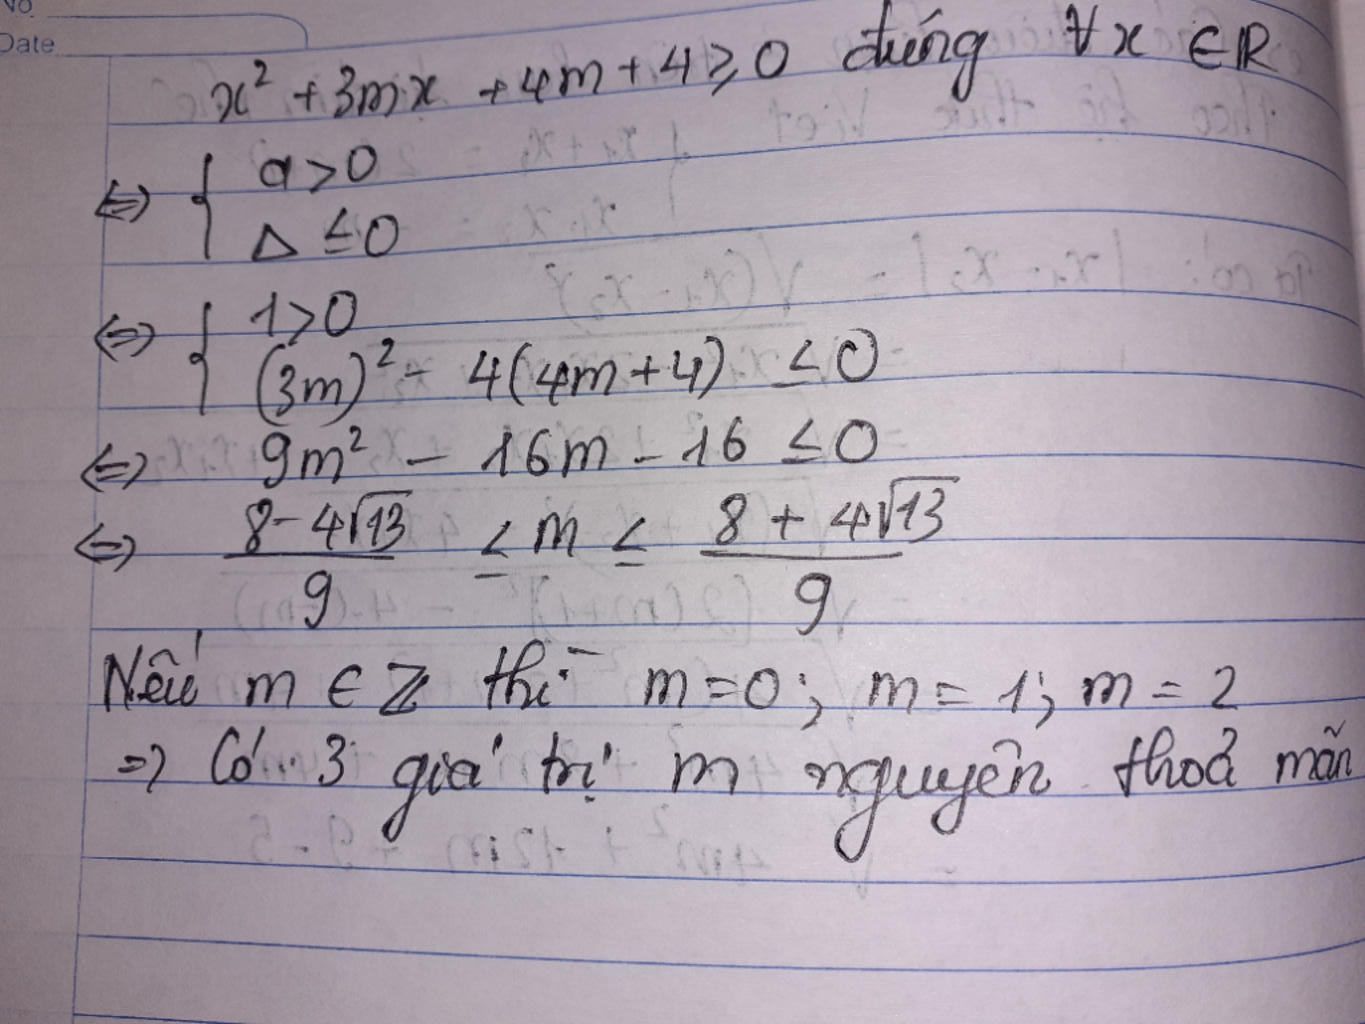 No
Date
x² + 3mx + 4m + 4 ≥ 0 đúng ∀x ∈ R
⇔ { a > 0
Δ ≤ 0
⇔ { 1 > 0
(3m)² - 4(4m + 4) ≤ 0
⇔ 9m² - 16m - 16 ≤ 0
⇔ (8 - 4√13)/9 ≤ m ≤ (8 + 4√13)/9
Nếu m ∈ Z thì m = 0; m = 1; m = 2
⇒ Có 3 giá trị m nguyên thoả mãn